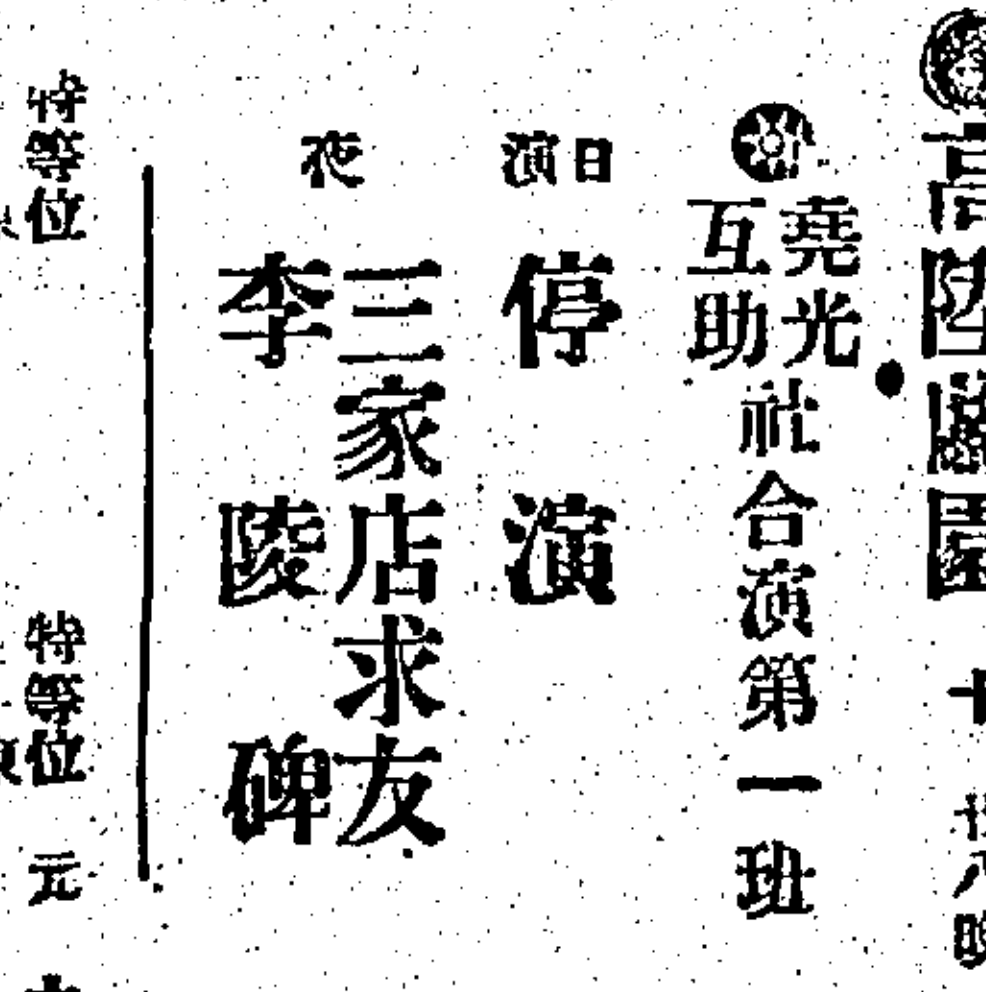 高陞戲園
堯光
互助
社合演第一班
日演
停演
夜
三家店求友
李陵碑
特等位
特等位
元